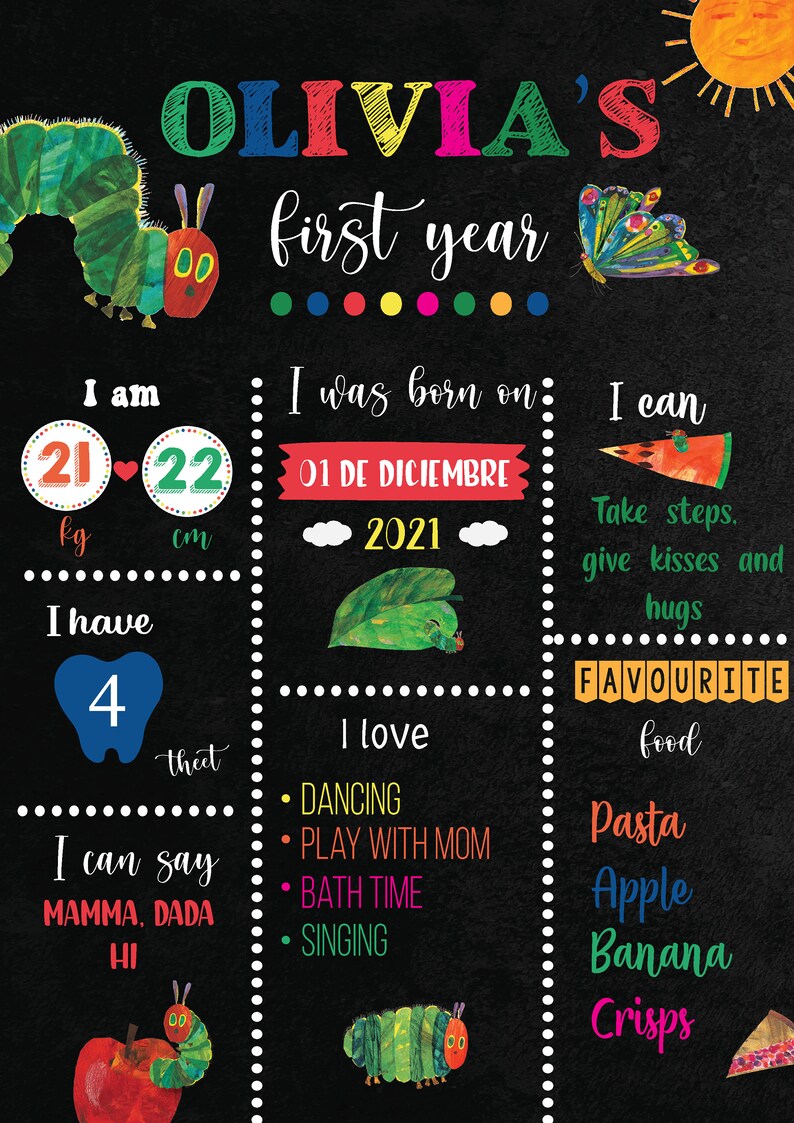 OLIVIA'S
first year
I am
21 22
kg cm
I have
4
theet
I can say
MAMMA, DADA
HI
I was born on
01 DE DICIEMBRE
2021
I love
• DANCING
• PLAY WITH MOM
• BATH TIME
• SINGING
I can
Take steps.
give kisses and
hugs
FAVOURITE
food
Pasta
Apple
Banana
Crisps